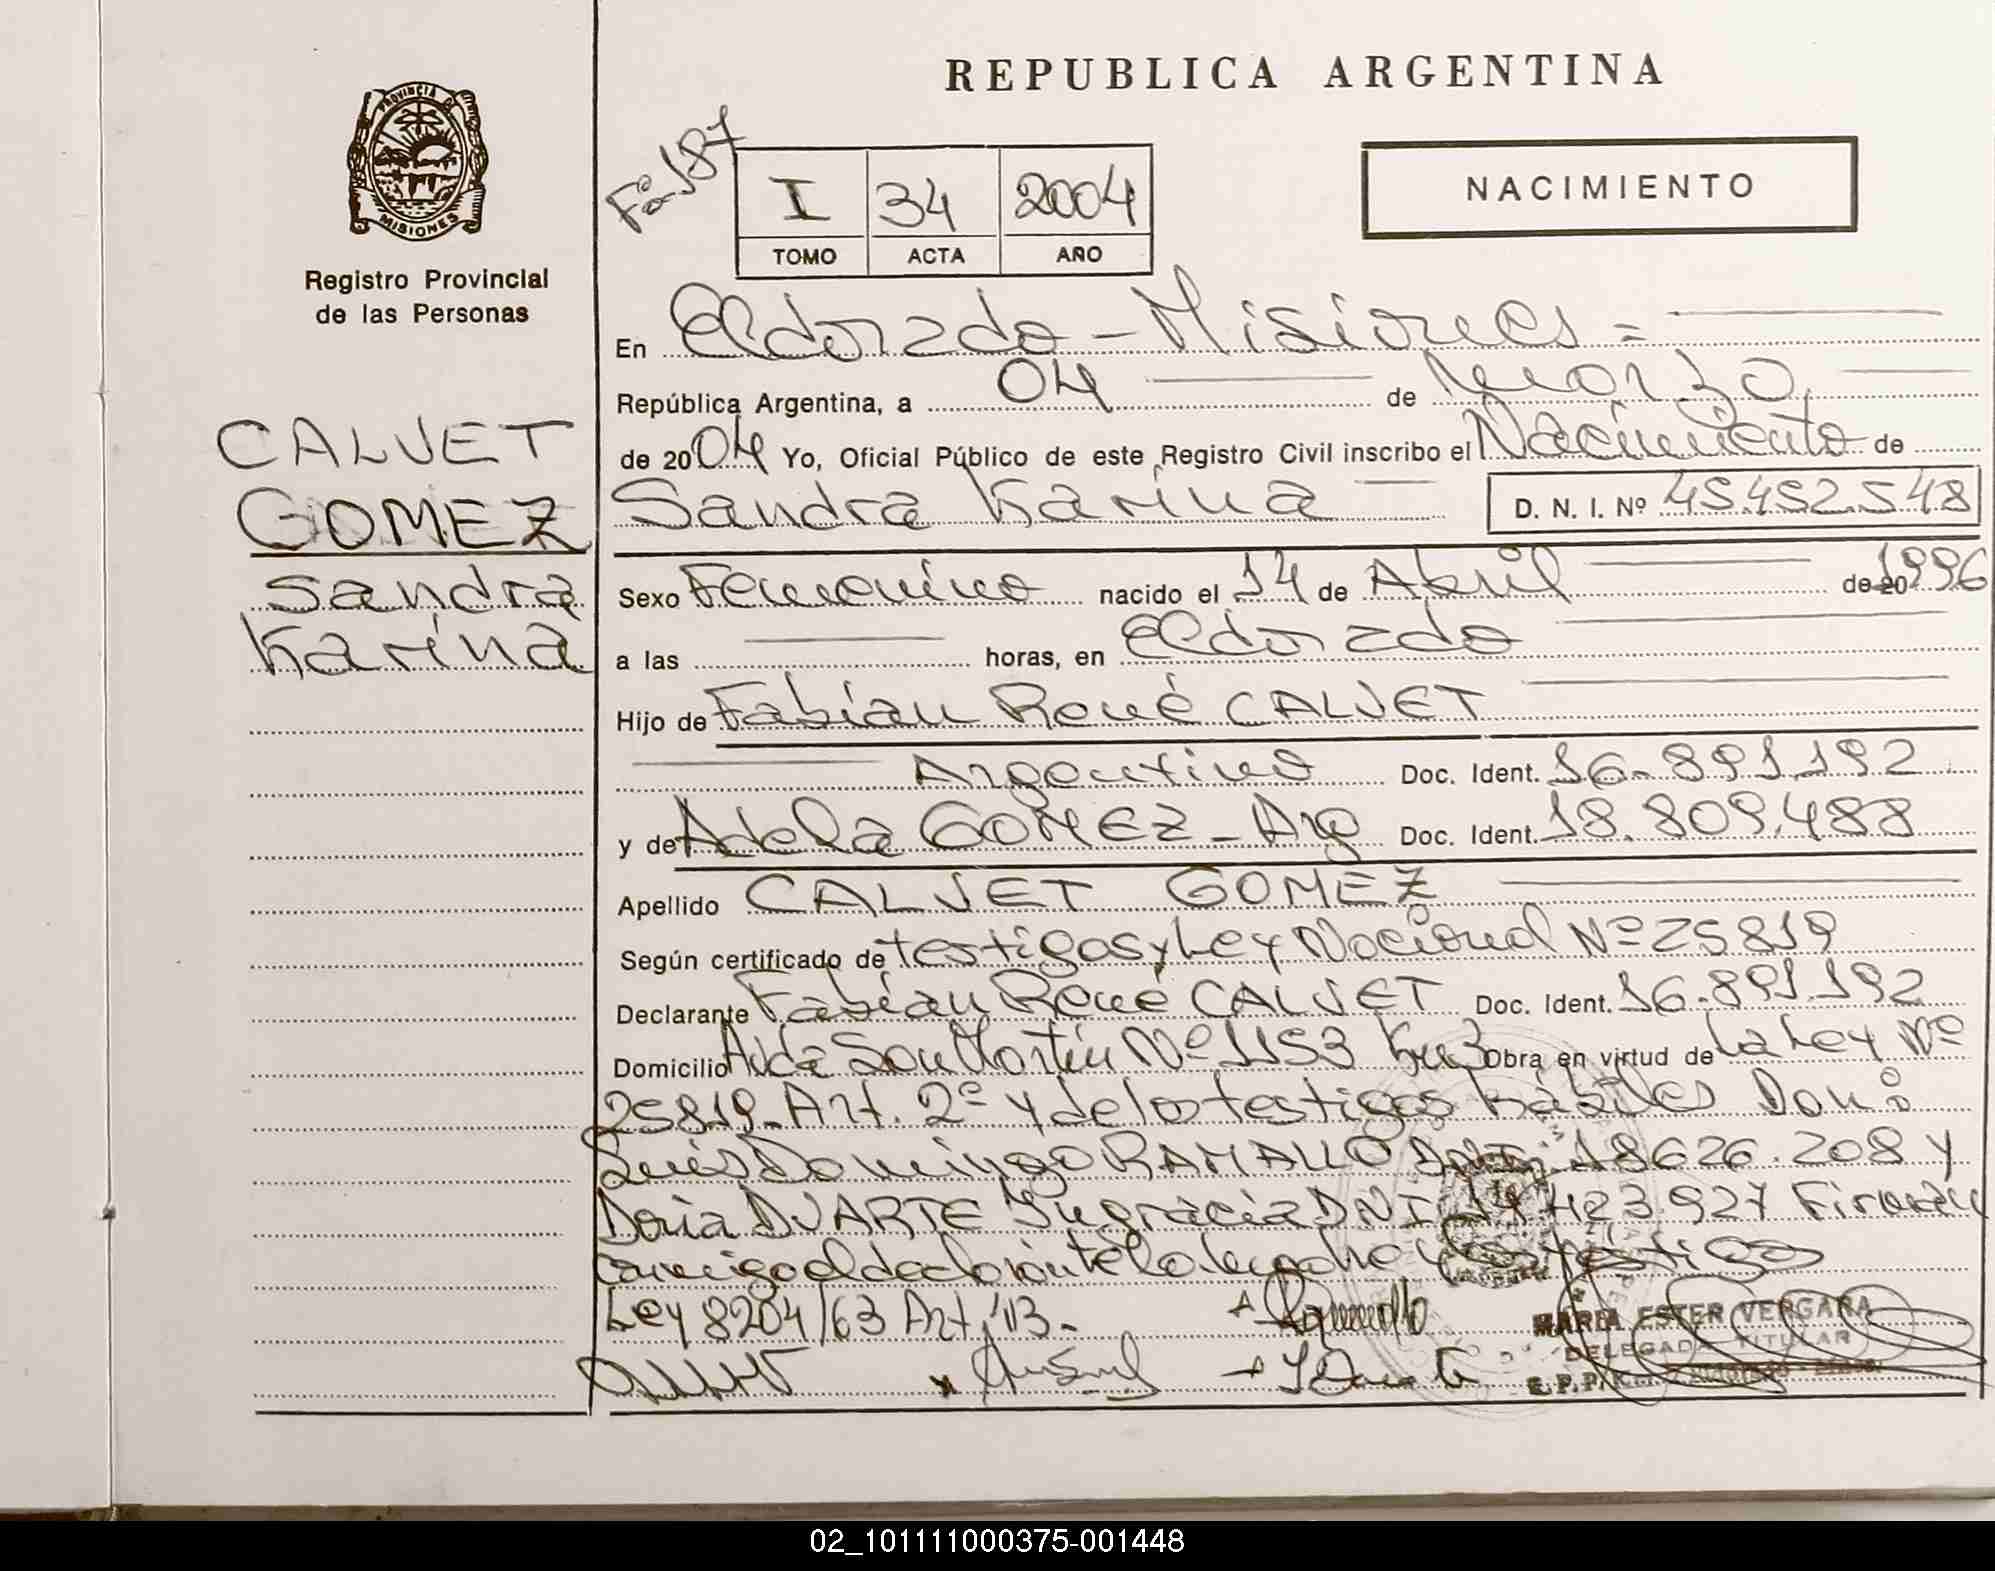 REPUBLICA ARGENTINA
PROVINCIA DE
MISIONES
Registro Provincial
de las Personas
Fº 187
I 34 2004
TOMO ACTA AÑO
NACIMIENTO
CALVET
GOMEZ
Sandra
Karina
En Eldorado - Misiones =
República Argentina, a 04 de Marzo
de 2004 Yo, Oficial Público de este Registro Civil inscribo el Nacimiento de
Sandra Karina D. N. I. Nº 45.452.548
Sexo Femenino nacido el 14 de Abril de 20 1996
a las horas, en Eldorado
Hijo de Fabián René CALVET
Argentino Doc. Ident. 16.891.192
y de Adela GOMEZ - Arg Doc. Ident. 18.809.488
Apellido CALVET GOMEZ
Según certificado de testigos y Ley Nacional Nº 25819
Declarante Fabián René CALVET Doc. Ident. 16.891.192
Domicilio Avda San Martín Nº 1153 Km 3 Obra en virtud de la Ley Nº
25819 - Art. 2º y de los testigos hábiles Don:
Luis Domingo RAMALLO DNI: 18626.208 y
Doña DUARTE Ingracia DNI 14.423.927 Firman
conmigo el declarante la madre y los testigos
Ley 8204/63 Art. 13.
Ramallo
MARIA ESTER VERGARA
DELEGADA TITULAR
R.P.P.
02_101111000375-001448